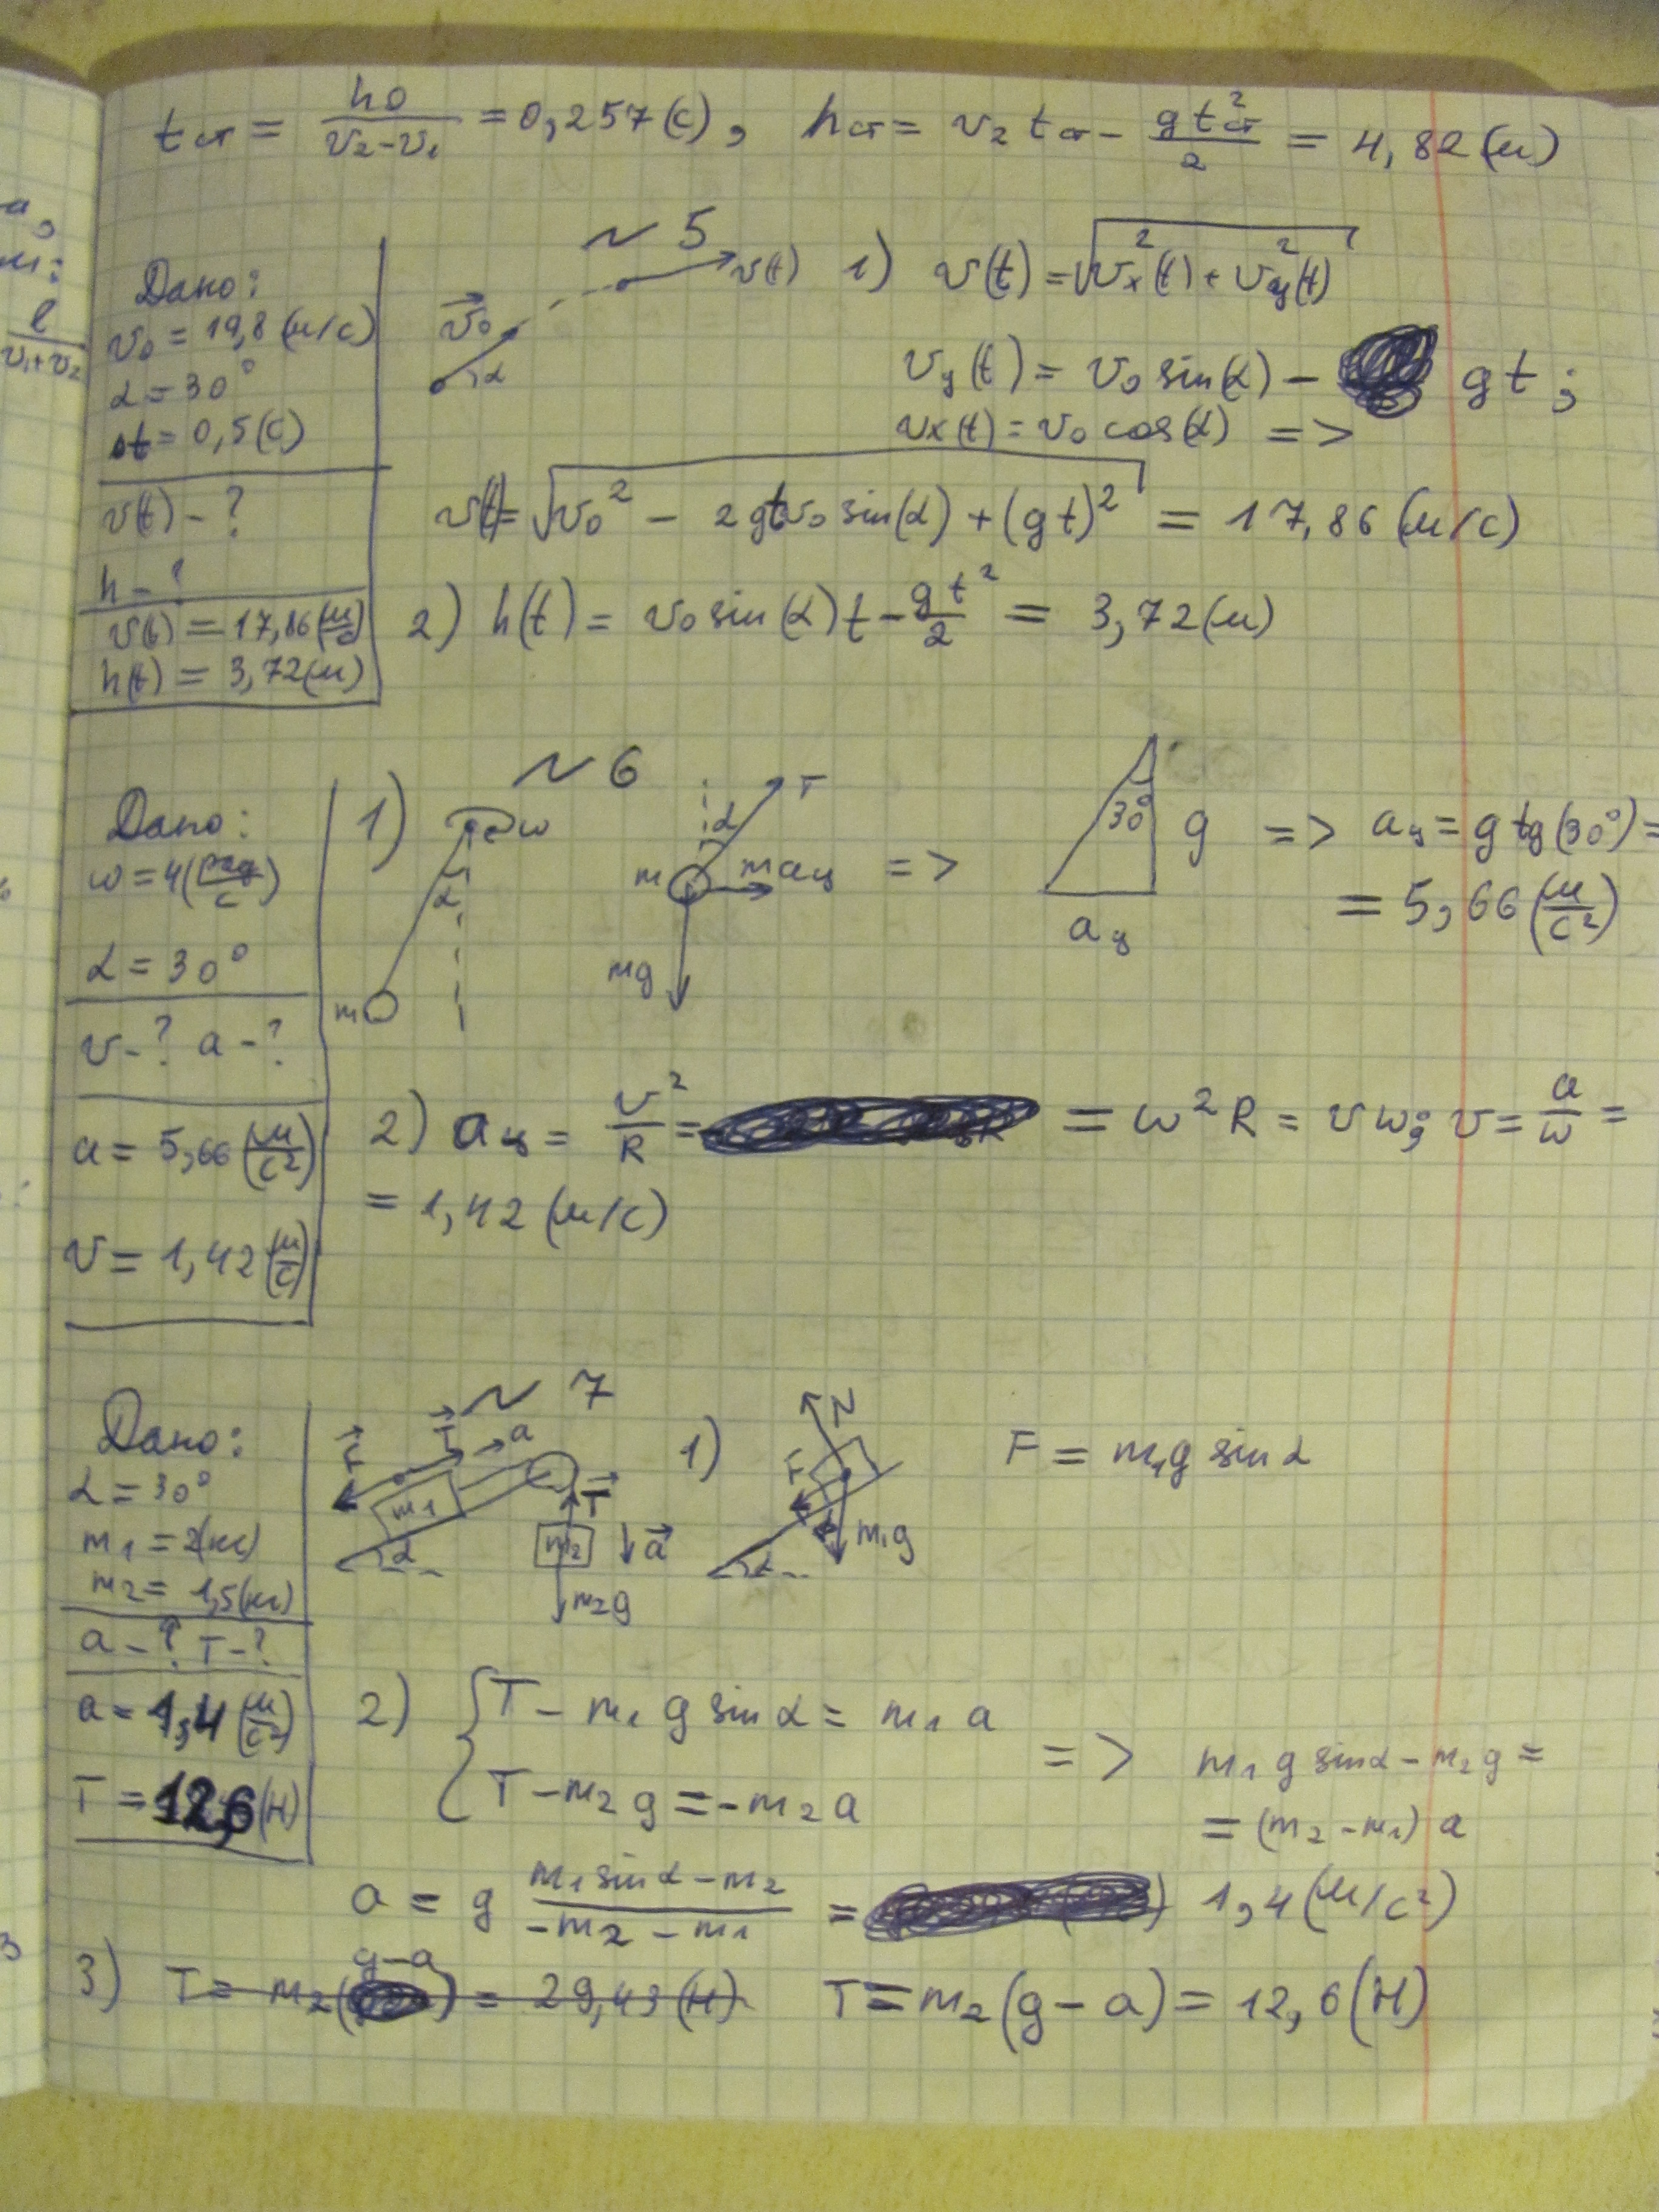 a,
и:
l / (v₁+v₂)
tст = h0 / (v₂−v₁) = 0,257 (с), hст = v₂ tст − g tст² / 2 = 4,82 (м)
~ 5
Дано:
v₀ = 19,8 (м/с)
α = 30°
Δt = 0,5 (с)
v(t) − ?
h − ?
v(t) = 17,86 (м/с)
h(t) = 3,72 (м)
v₀ α v(t)
1) v(t) = √(vx²(t) + vy²(t))
vy(t) = v₀ sin(α) − gt ;
vx(t) = v₀ cos(α) =>
v(t) = √(v₀² − 2gtv₀ sin(α) + (gt)²) = 17,86 (м/с)
2) h(t) = v₀ sin(α) t − gt² / 2 = 3,72 (м)
~ 6
Дано:
ω = 4 (рад/с)
α = 30°
v − ? a − ?
a = 5,66 (м/с²)
v = 1,42 (м/с)
1) ω α m
α T m maц mg =>
30° g aц
=> aц = g tg(30°) =
= 5,66 (м/с²)
2) aц = v² / R = = ω² R = vω; v = a / ω =
= 1,42 (м/с)
~ 7
Дано:
α = 30°
m₁ = 2 (кг)
m₂ = 1,5 (кг)
a − ? T − ?
a = 1,4 (м/с²)
T = 12,6 (Н)
F T a m₁ α T m₂ a m₂g
1) N F m₁g α
F = m₁g sin α
2) { T − m₁ g sin α = m₁ a
T − m₂ g = −m₂ a
=> m₁ g sin α − m₂ g =
= (m₂ − m₁) a
a = g (m₁ sin α − m₂) / (−m₂ − m₁) = 1,4 (м/с²)
3) T = m₂ (g−a) = 29,43 (Н) T = m₂ (g − a) = 12,6 (Н)